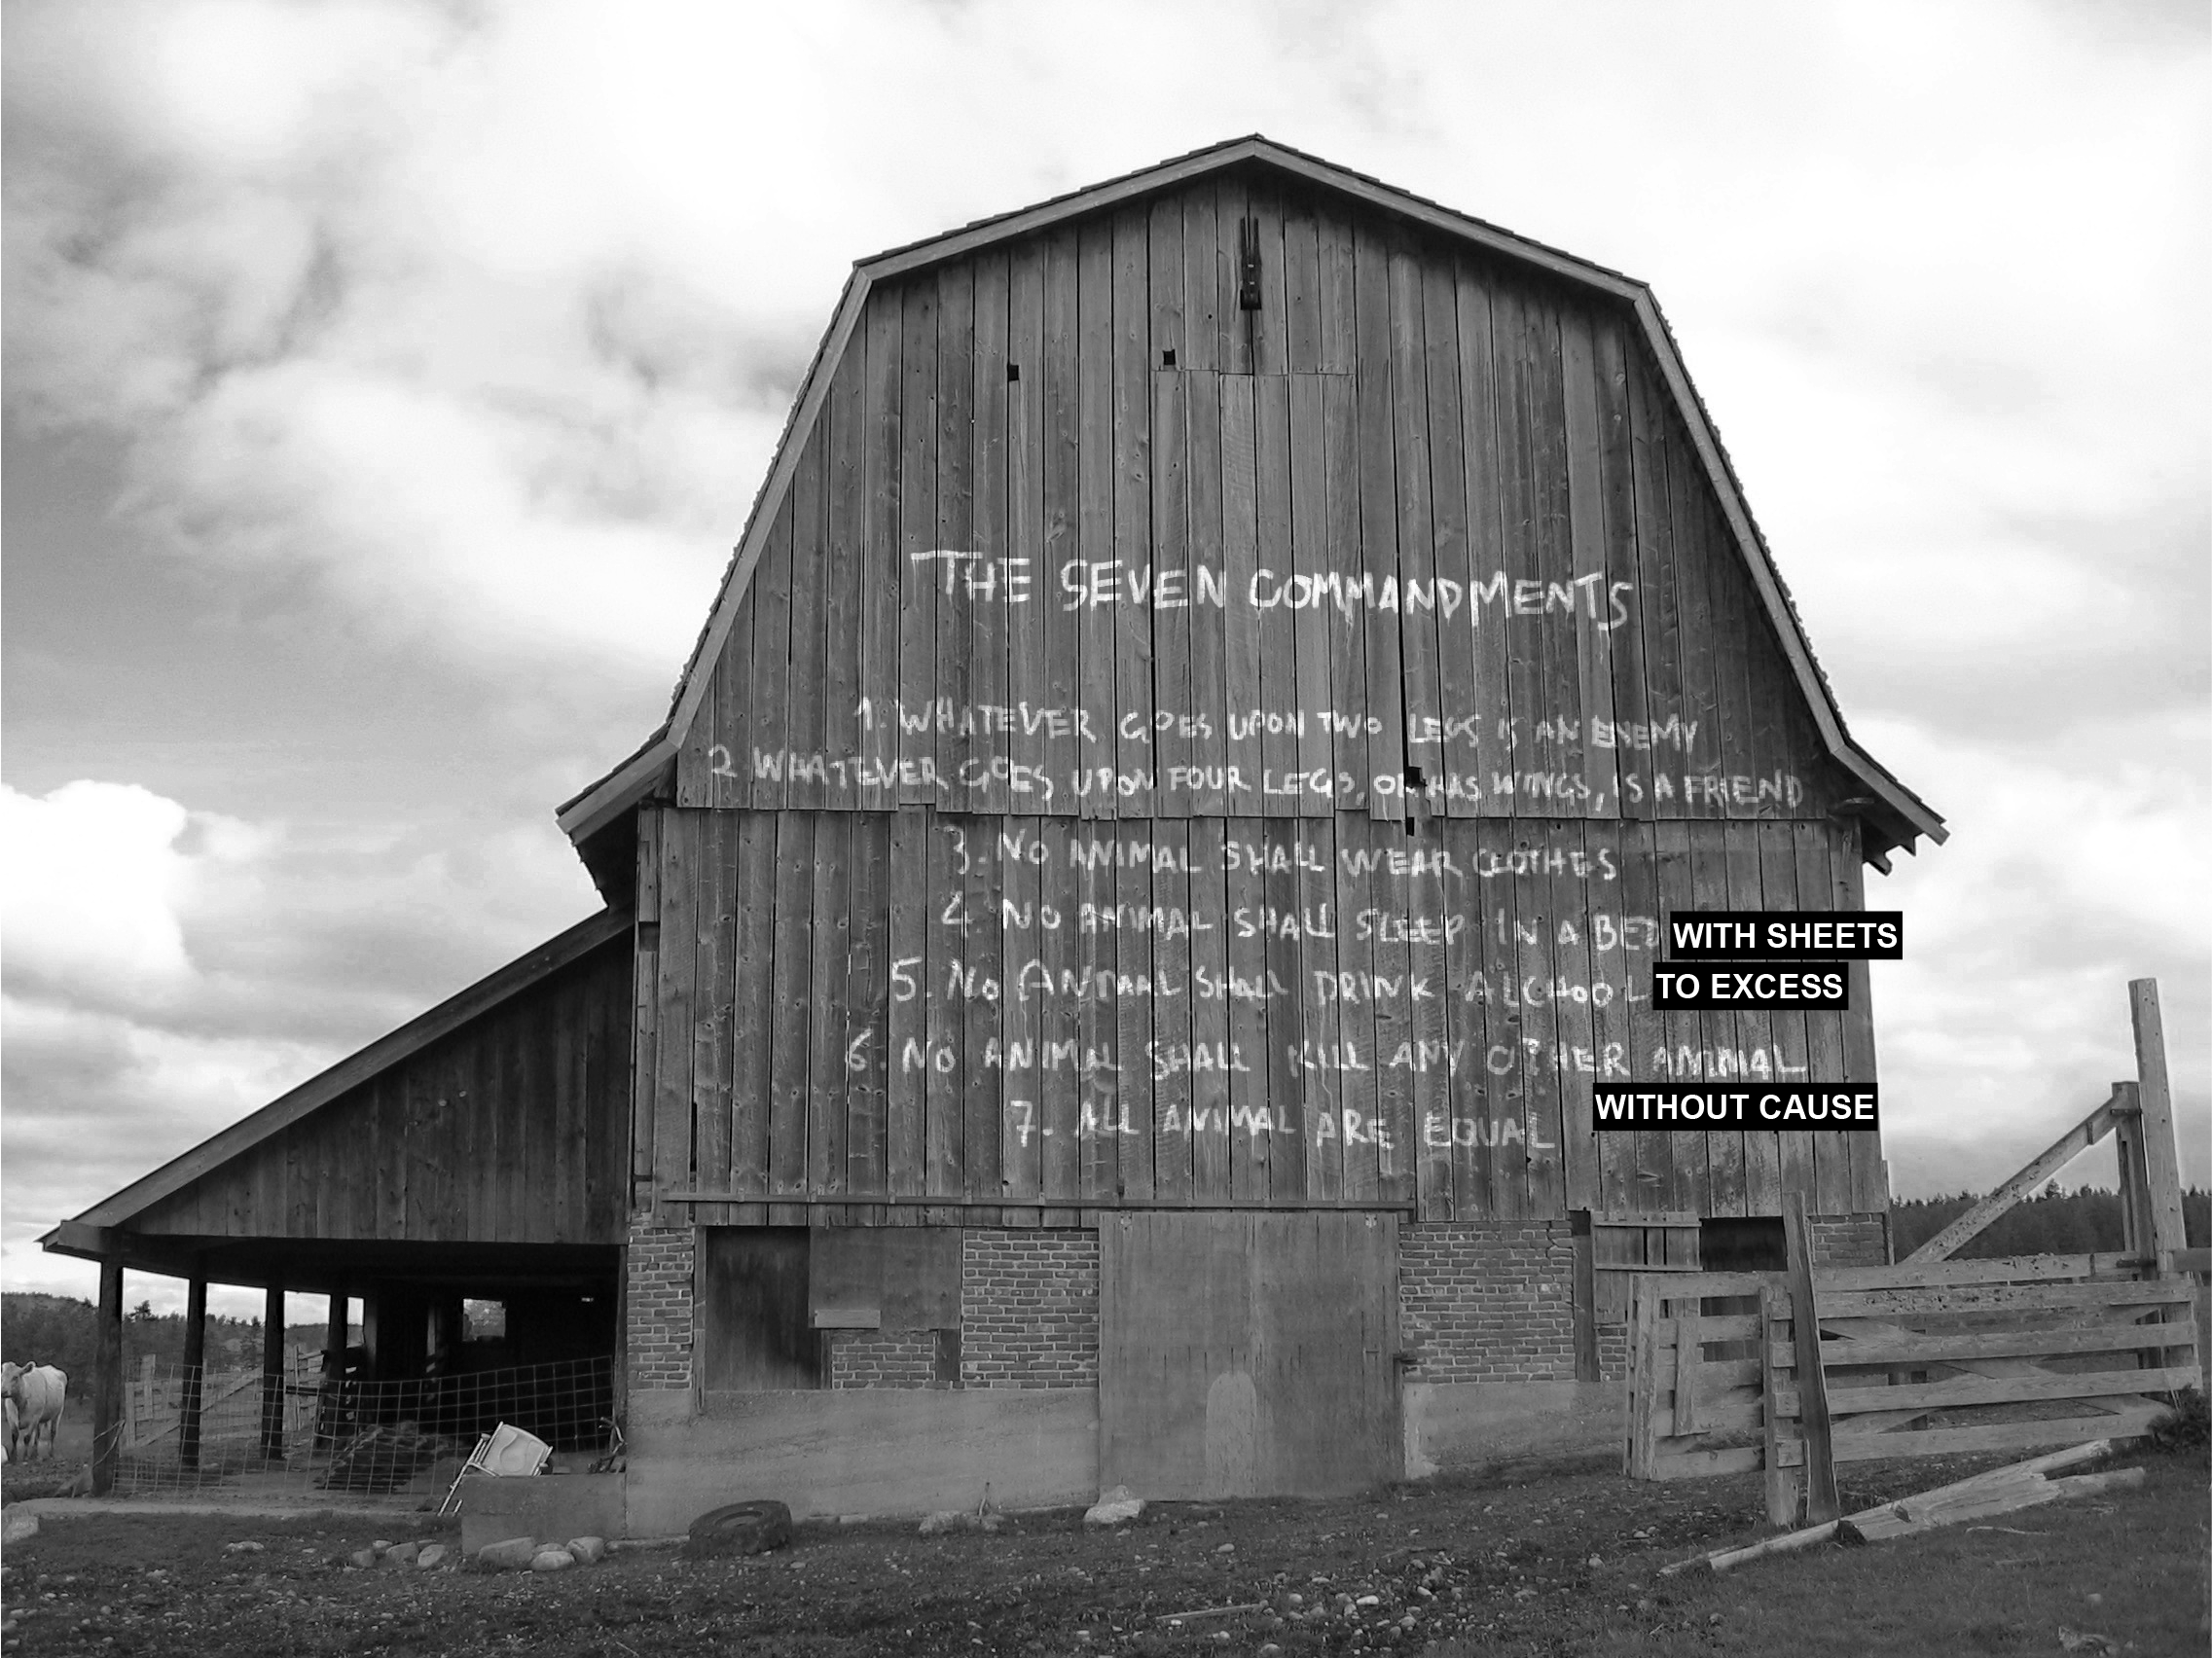 THE SEVEN COMMANDMENTS
1. WHATEVER GOES UPON TWO LEGS IS AN ENEMY
2 WHATEVER GOES UPON FOUR LEGS, OR HAS WINGS, IS A FRIEND
3. NO ANIMAL SHALL WEAR CLOTHES
4. NO ANIMAL SHALL SLEEP IN A BED WITH SHEETS
5. NO ANIMAL SHALL DRINK ALCHOOL TO EXCESS
6. NO ANIMAL SHALL KILL ANY OTHER ANIMAL
WITHOUT CAUSE
7. ALL ANIMAL ARE EQUAL